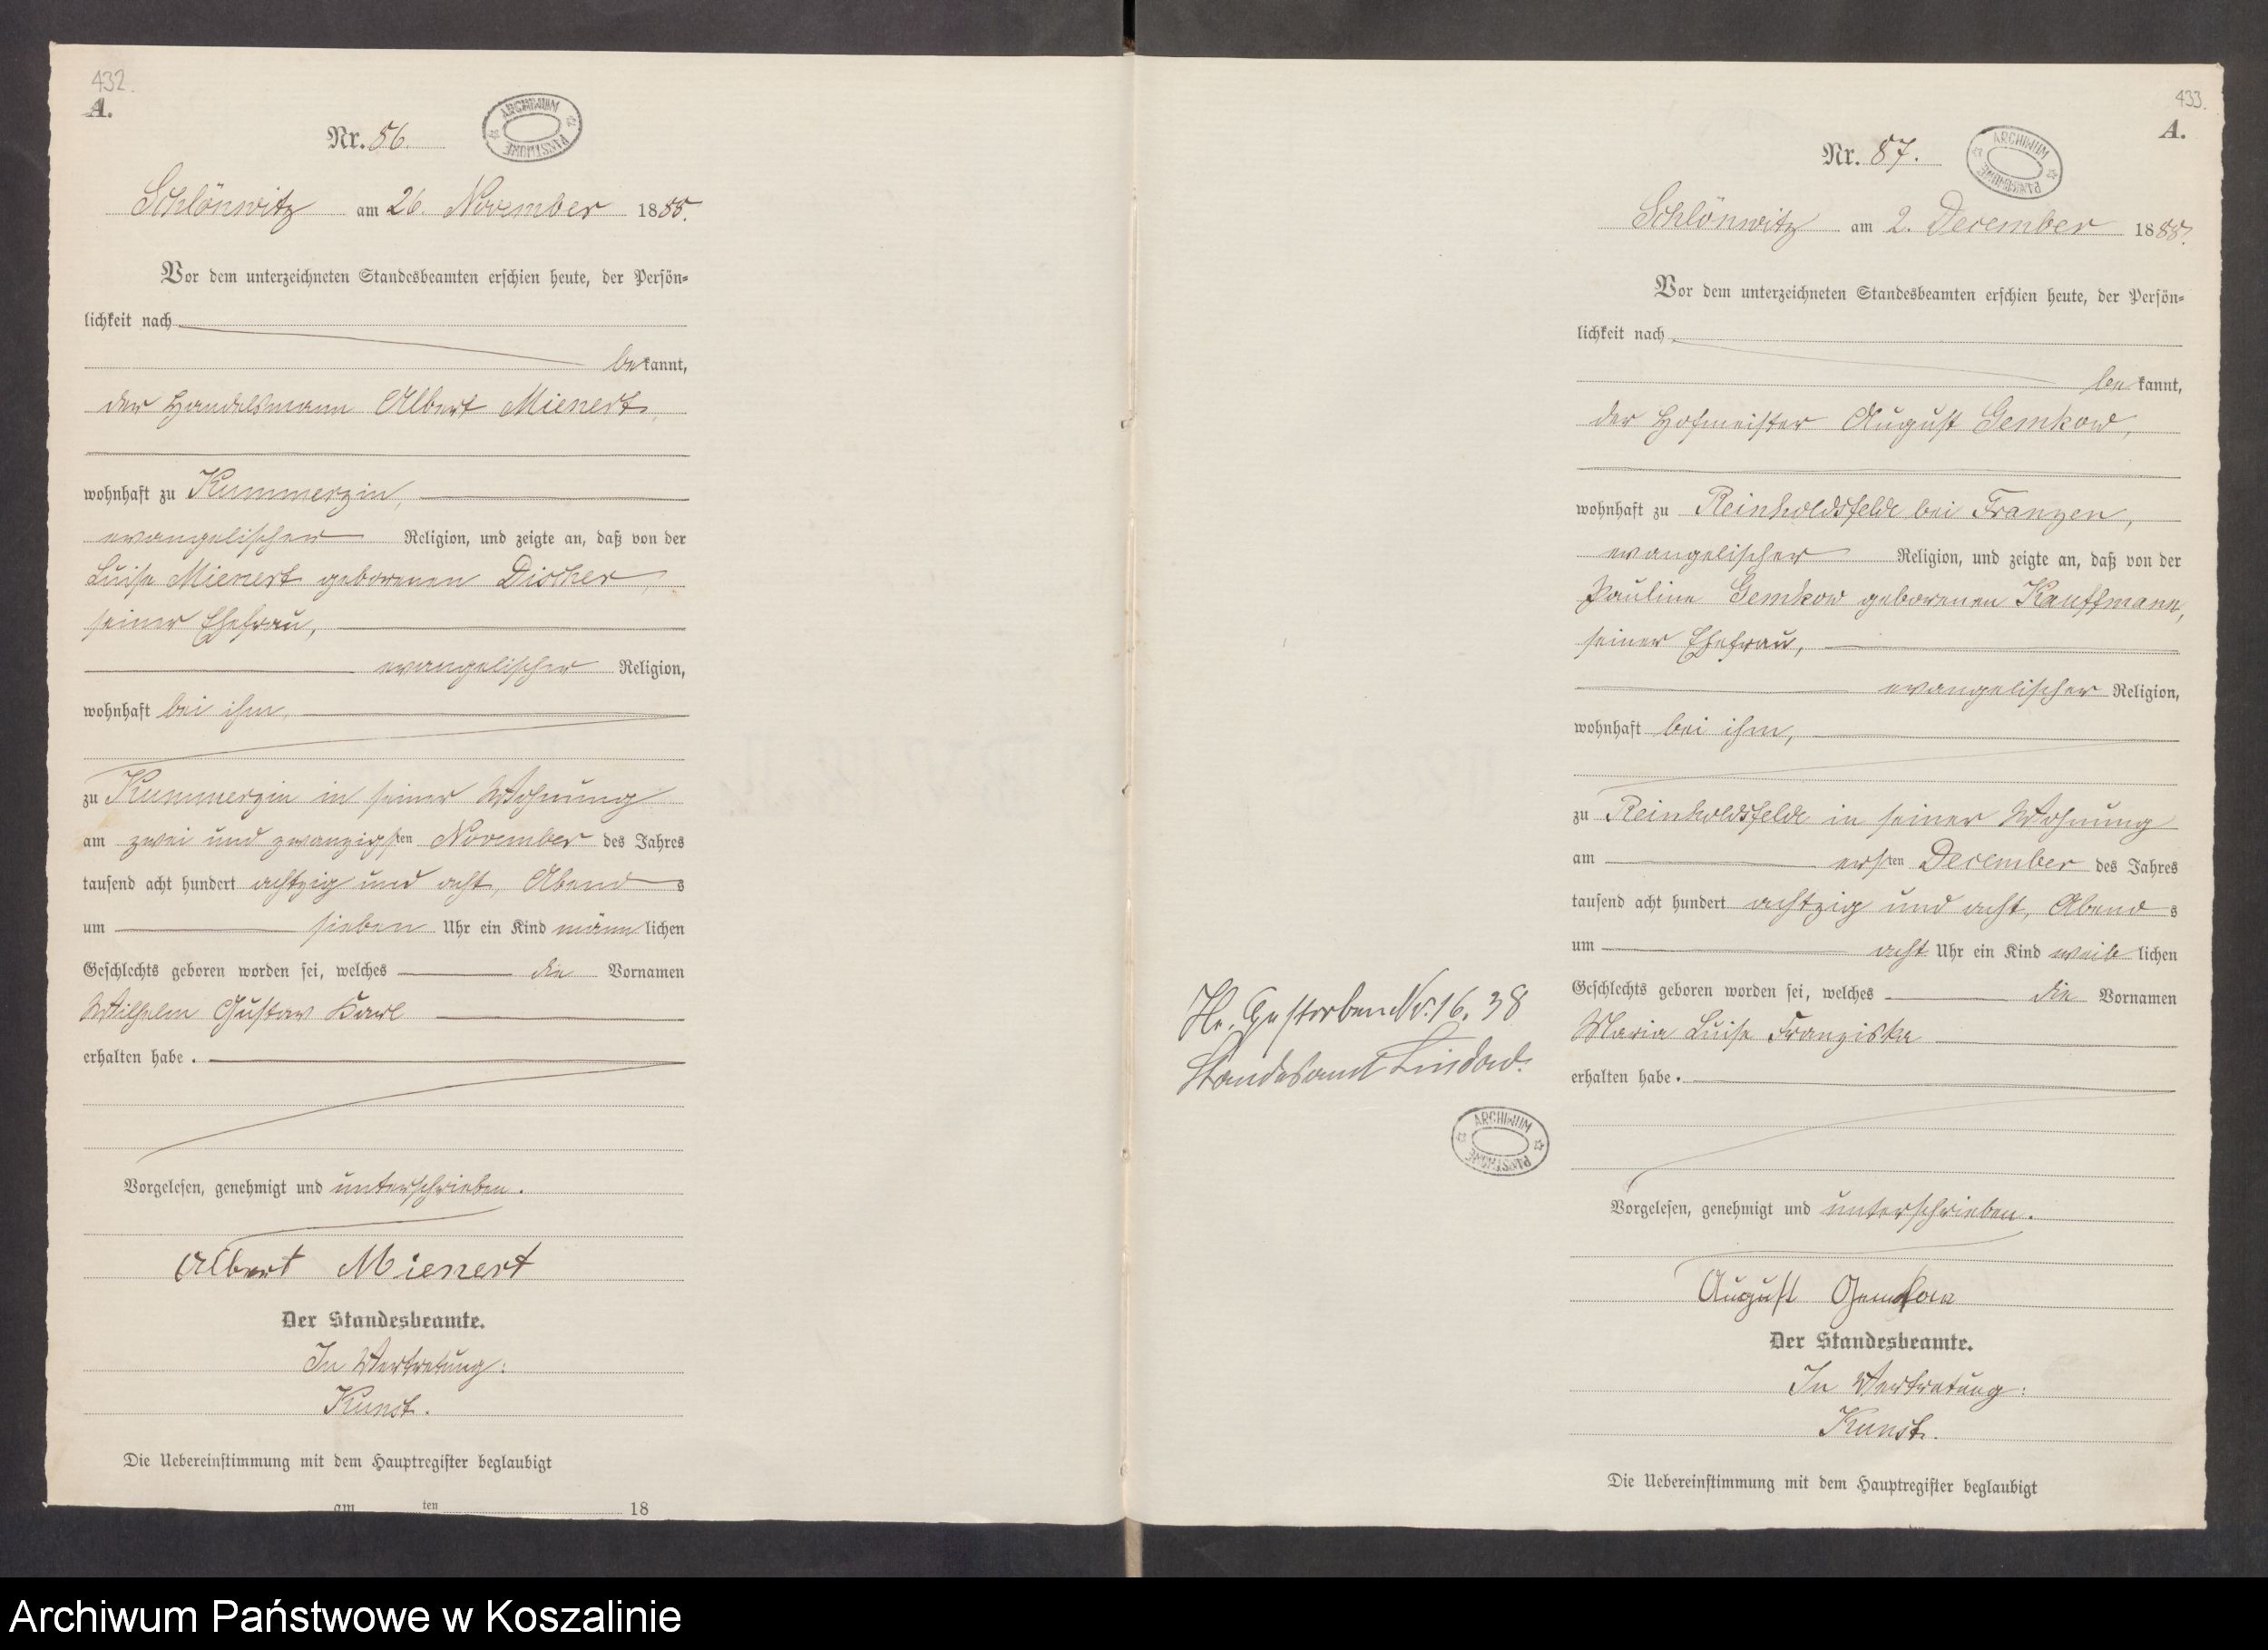 432.
A.
ARCHIWUM PAŃSTWOWE
Nr. 86.
Schlönwitz am 26. November 1888.
Vor dem unterzeichneten Standesbeamten erschien heute, der Persön-
lichkeit nach
bekannt,
der Handelsmann Albert Mienert,
wohnhaft zu Kummerzin,
evangelischer Religion, und zeigte an, daß von der
Luise Mienert geborenen Discher,
seiner Ehefrau,
evangelischer Religion,
wohnhaft bei ihm,
zu Kummerzin in seiner Wohnung
am zwei und zwanzigsten November des Jahres
tausend acht hundert achtzig und acht, Abends
um sieben Uhr ein Kind männlichen
Geschlechts geboren worden sei, welches die Vornamen
Wilhelm Gustav Karl
erhalten habe.
Vorgelesen, genehmigt und unterschrieben.
Albert Mienert
Der Standesbeamte.
In Vertretung:
Kunst.
Die Uebereinstimmung mit dem Hauptregister beglaubigt
am ten 18
433.
A.
ARCHIWUM PAŃSTWOWE
Nr. 87.
Schlönwitz am 2. December 1888.
Vor dem unterzeichneten Standesbeamten erschien heute, der Persön-
lichkeit nach
bekannt,
der Hofmeister August Gemkow,
wohnhaft zu Reinholdsfelde bei Franzen,
evangelischer Religion, und zeigte an, daß von der
Pauline Gemkow geborenen Kauffmann,
seiner Ehefrau,
evangelischer Religion,
wohnhaft bei ihm,
zu Reinholdsfelde in seiner Wohnung
am ersten December des Jahres
tausend acht hundert achtzig und acht, Abends
um acht Uhr ein Kind weiblichen
Geschlechts geboren worden sei, welches die Vornamen
Maria Luise Franziska
erhalten habe.
Gestorben Nr. 16. 38
Standesamt
ARCHIWUM PAŃSTWOWE
Vorgelesen, genehmigt und unterschrieben.
August Gemkow
Der Standesbeamte.
In Vertretung:
Kunst.
Die Uebereinstimmung mit dem Hauptregister beglaubigt
Archiwum Państwowe w Koszalinie